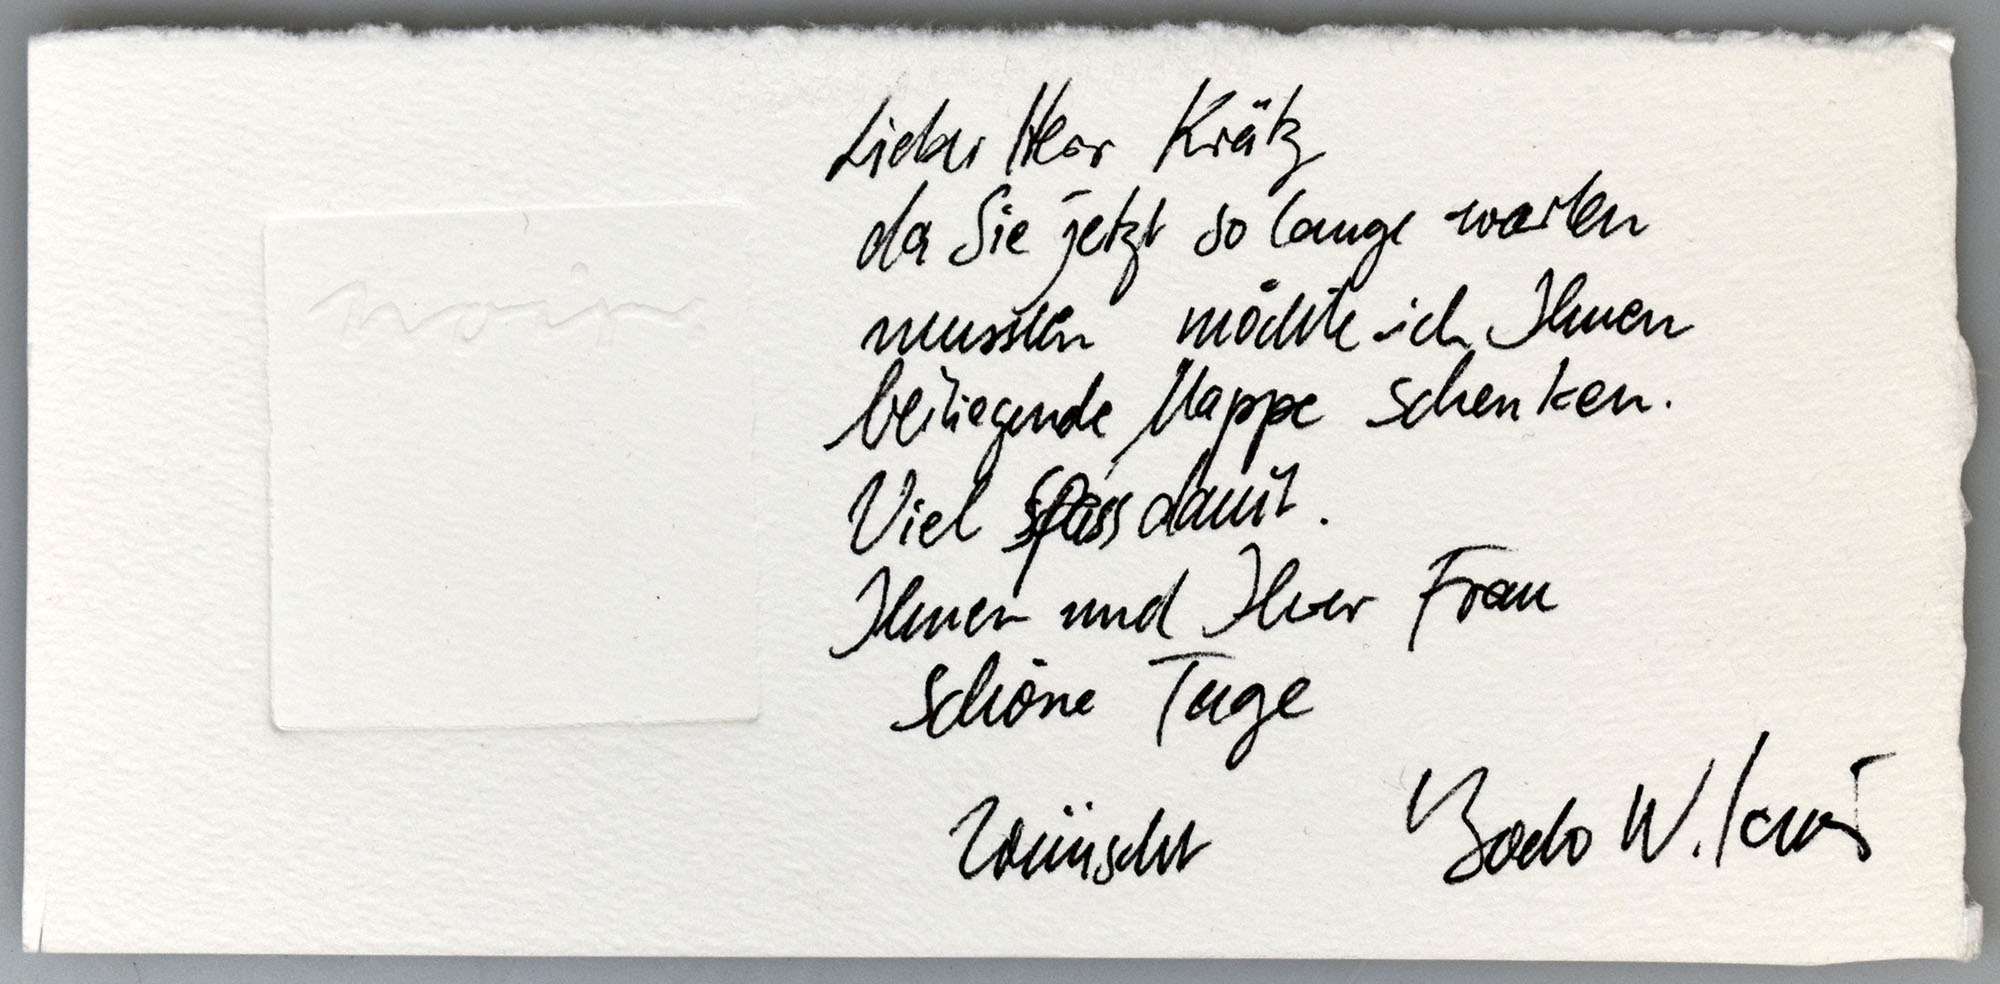 Lieber Herr Krätz
da Sie jetzt so lange warten
mussten möchte ich Ihnen
beiliegende Mappe schenken.
Viel spass damit.
Ihnen und Ihrer Frau
schöne Tage
wünscht Bodo W.